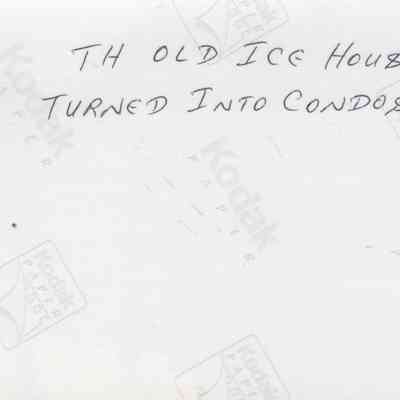 TH OLD ICE HOUS
TURNED INTO CONDOS
Kodak
PAPER
Kodak
PAPER
Kodak
PAPER
Kodak
PAPER
Kodak